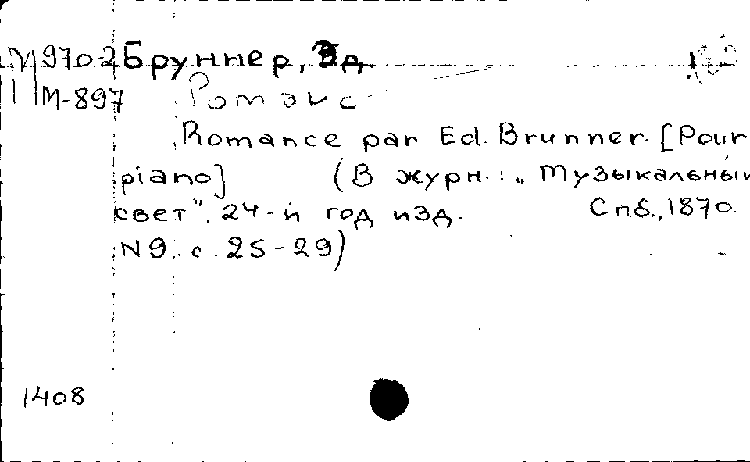 М 970-2 Бруннер, Эд.
М-897 Романс
Romance par Ed. Brunner. [Pour
piano] (В журн.: „Музыкальный
свет". 24-й год изд. Спб., 1870.
N 9. с. 25-29)
1408